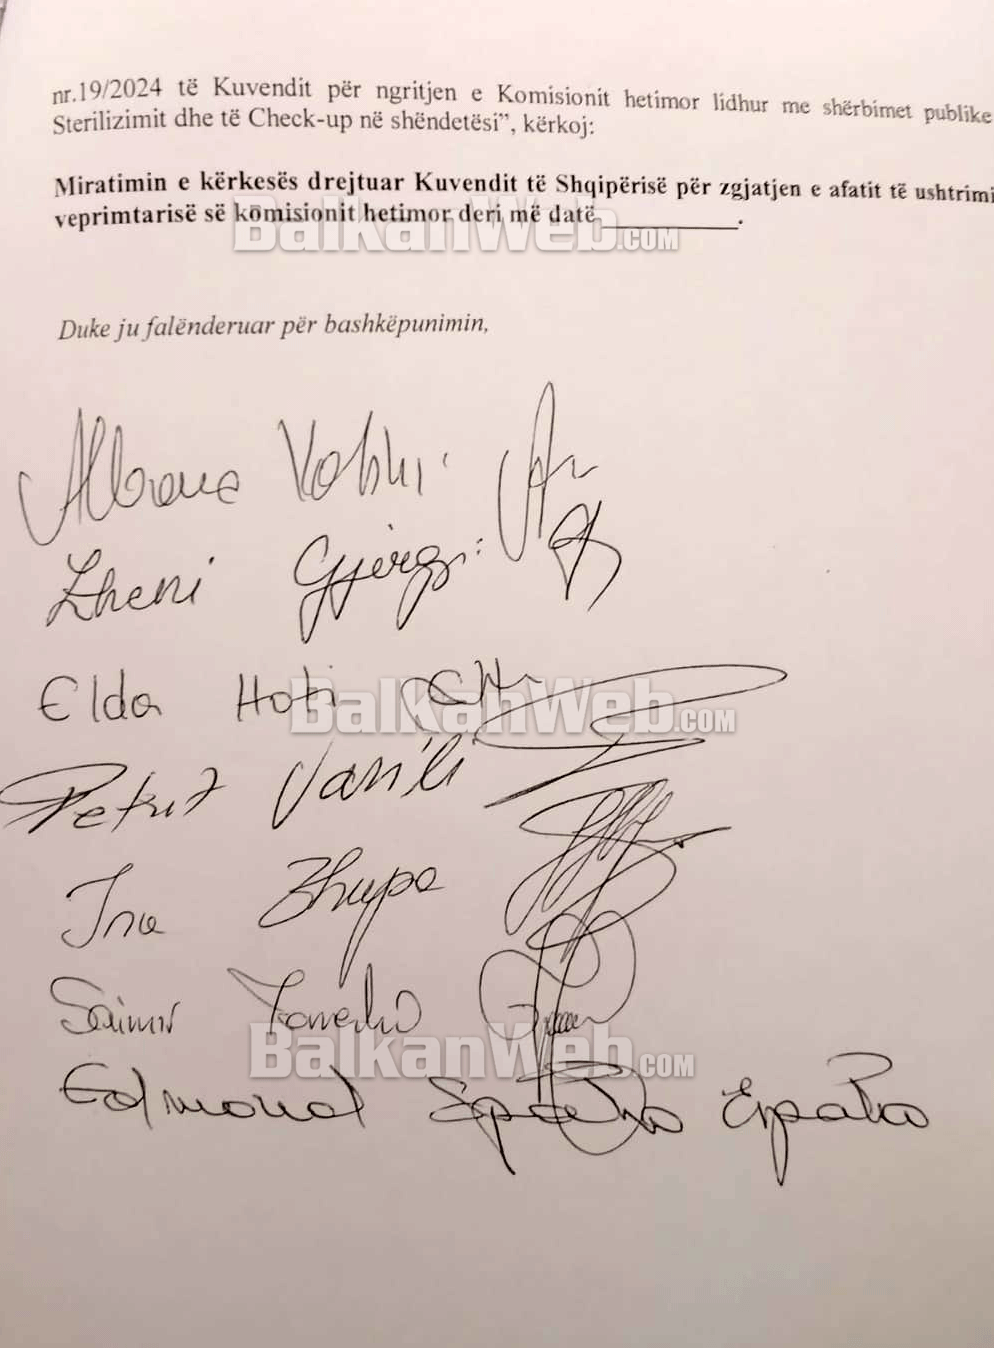 nr.19/2024 të Kuvendit për ngritjen e Komisionit hetimor lidhur me shërbimet publike
Sterilizimit dhe të Check-up në shëndetësi”, kërkoj:
Miratimin e kërkesës drejtuar Kuvendit të Shqipërisë për zgjatjen e afatit të ushtrimi
veprimtarisë së komisionit hetimor deri më datë ____________.
BalkanWeb.COM
Duke ju falënderuar për bashkëpunimin,
Albana Vokshi
Zheni Gjergji
Elda Hoti
BalkanWeb.COM
Petrit Vasili
Ina Zhupa
Saimir
BalkanWeb.COM
Edmond Spaho ESpaho